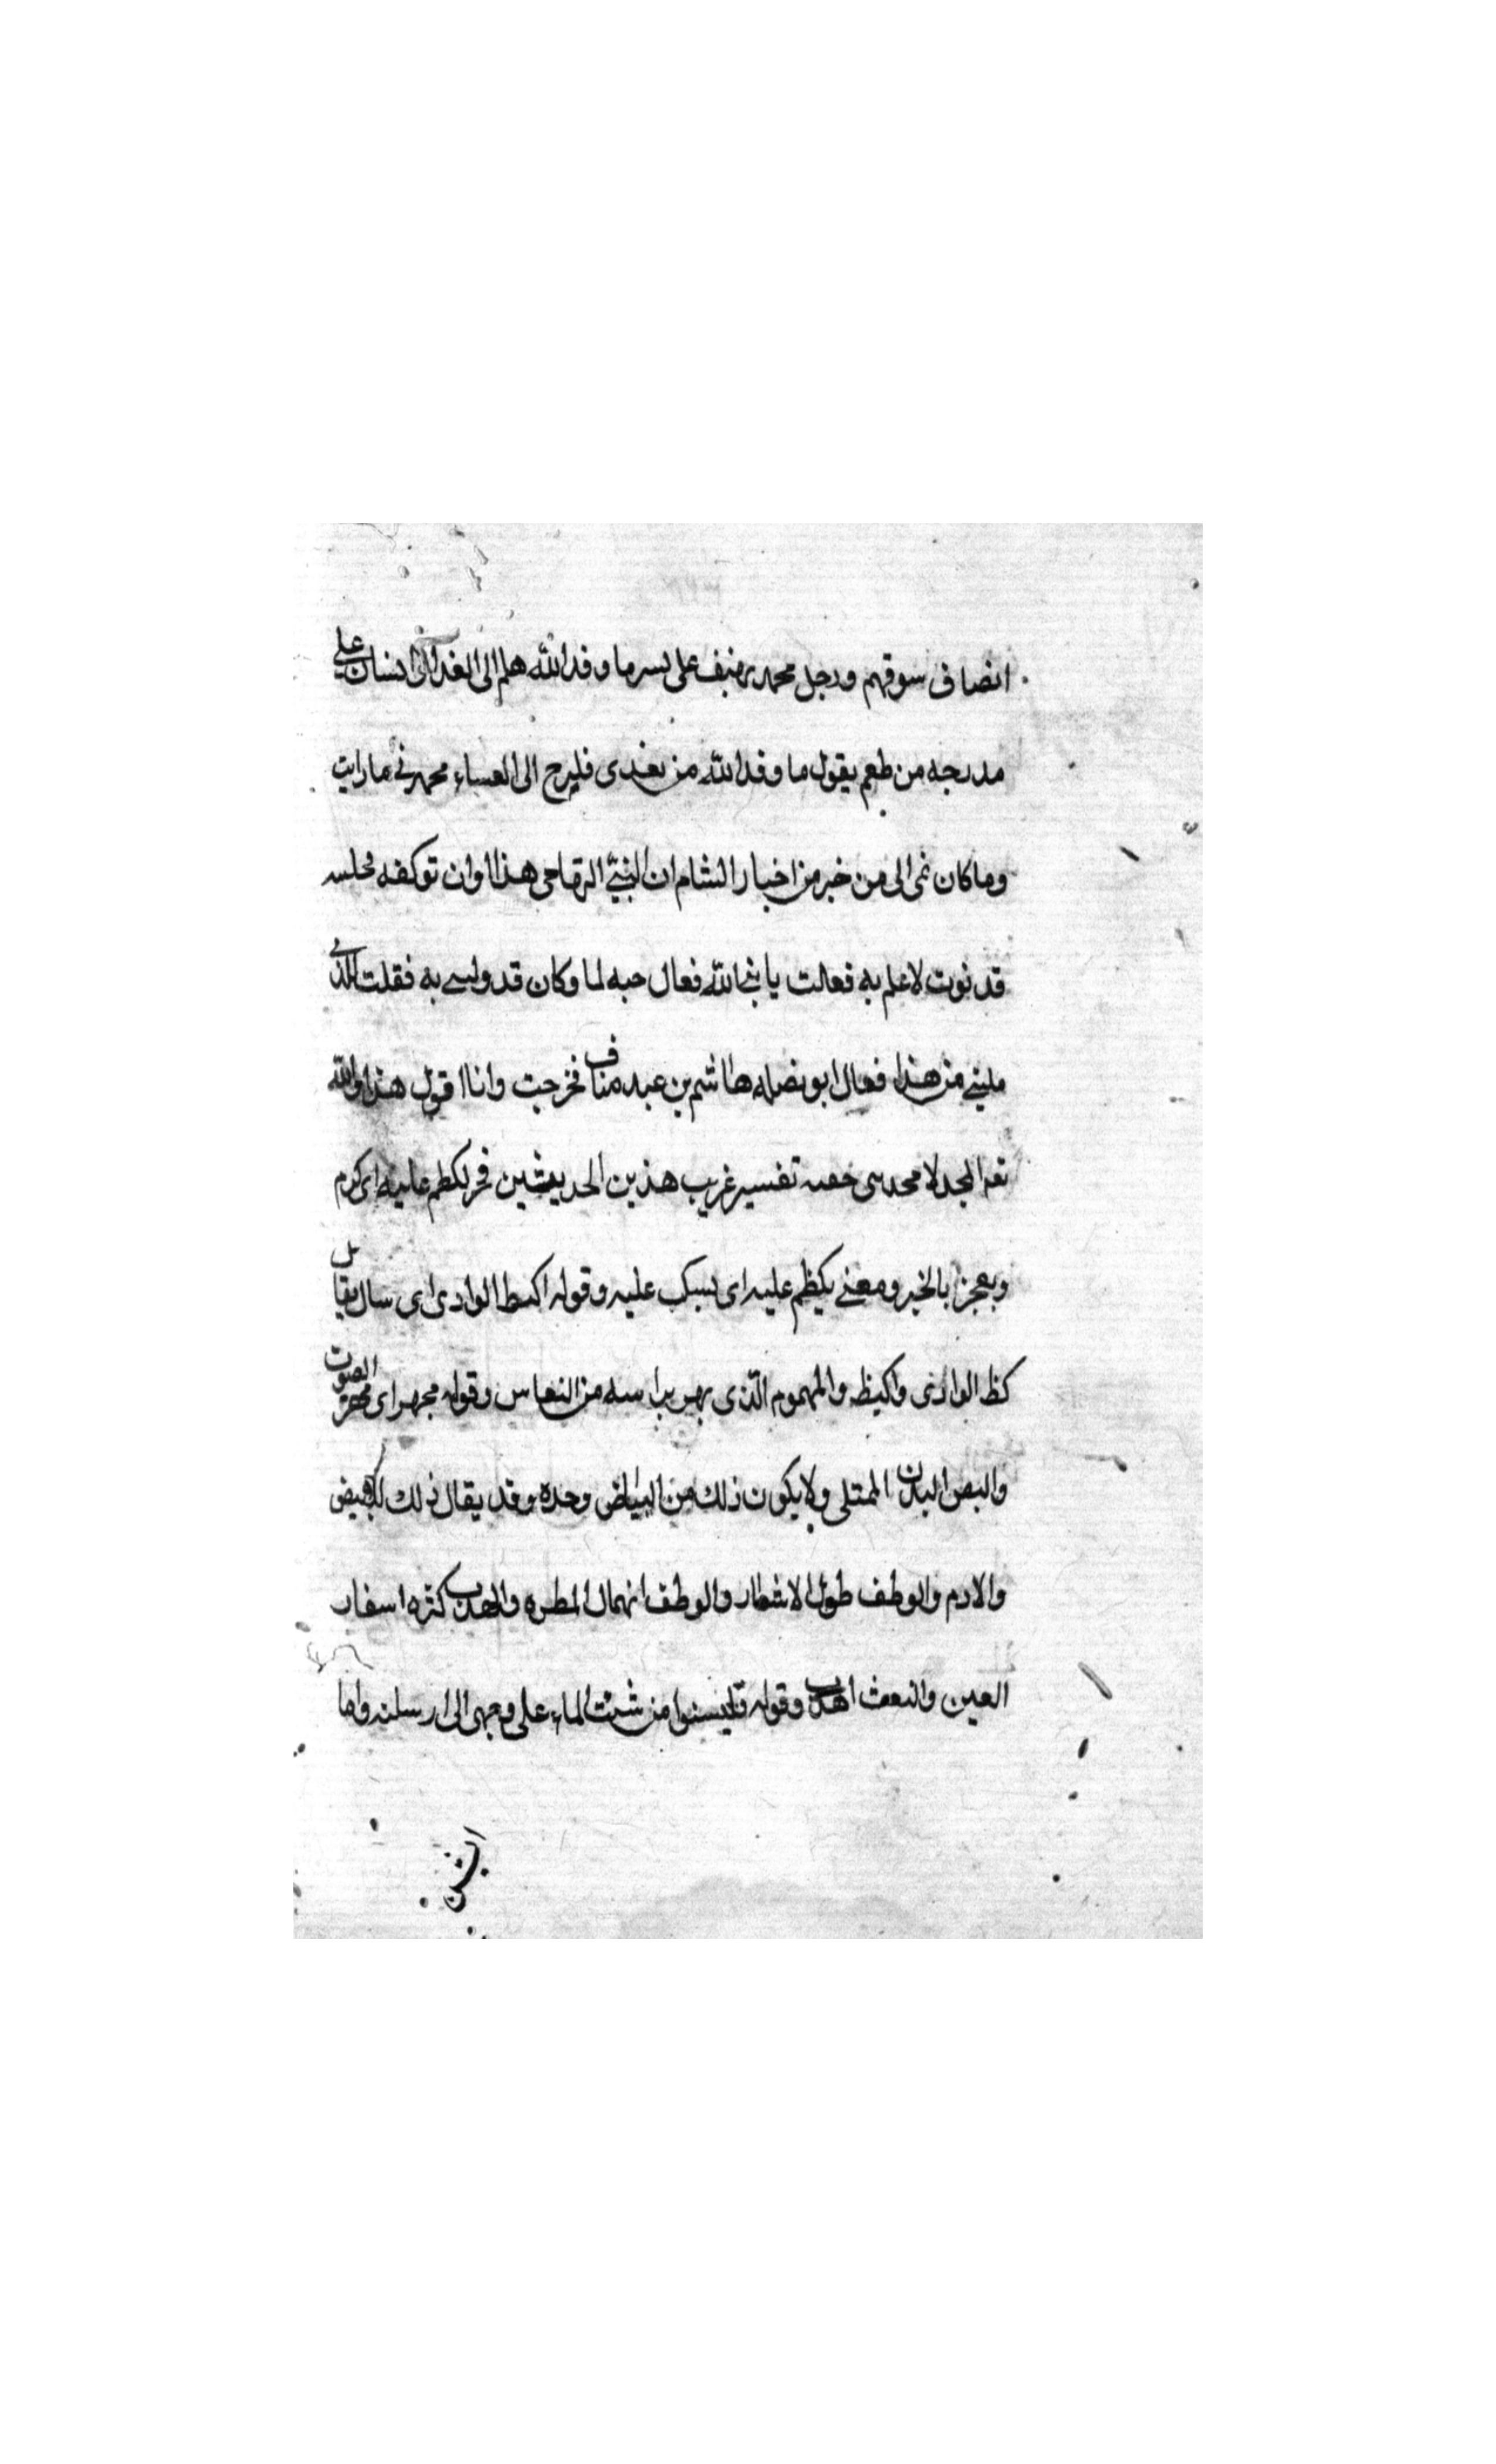 انصافى سوقهم ورجل محمد منيف على يسر ما وفد الله هلم الى الغداء انسان على
مدرجه من طعم يقول ما وفد الله من تغدى فليرح الى العساء محمر نى ما رايت
وما كان نمى الى من خبر من اخبار الشام ان النبى التهامى هذا اوان توكفه مجلسه
قد نوت لا علم به فعالت يا نبى الله فعال حبه لما وكان قد وليس به فقلت الذى
ملينى من هذا فعال ابو نضله هاشم بن عبد مناف فخرجت وانا اقول هذا والله
المجد لا محد تفسير غريب هذين الحديثين فخر لكظم عليه اى كرم
ويعجز بالخير ومعنى يكيظم عليه اى يسبك عليه وقوله اكبط الوادى اى سال يقال
كظ الوادى واكيظ والمهموم الذى يهوم براسه من النعاس وقوله مجهر اى الصوت
والبص البدن الممتلى ولا يكون ذلك من البياض وحده وقد يقال ذلك للابيض
والادم والوطف طول الاشطار والوطف انهمال المطره والهدب كثره اسفار
العين والنعت اهدب وقوله فليسنوا من شنت الماء على وجهى الى ارسلته واما